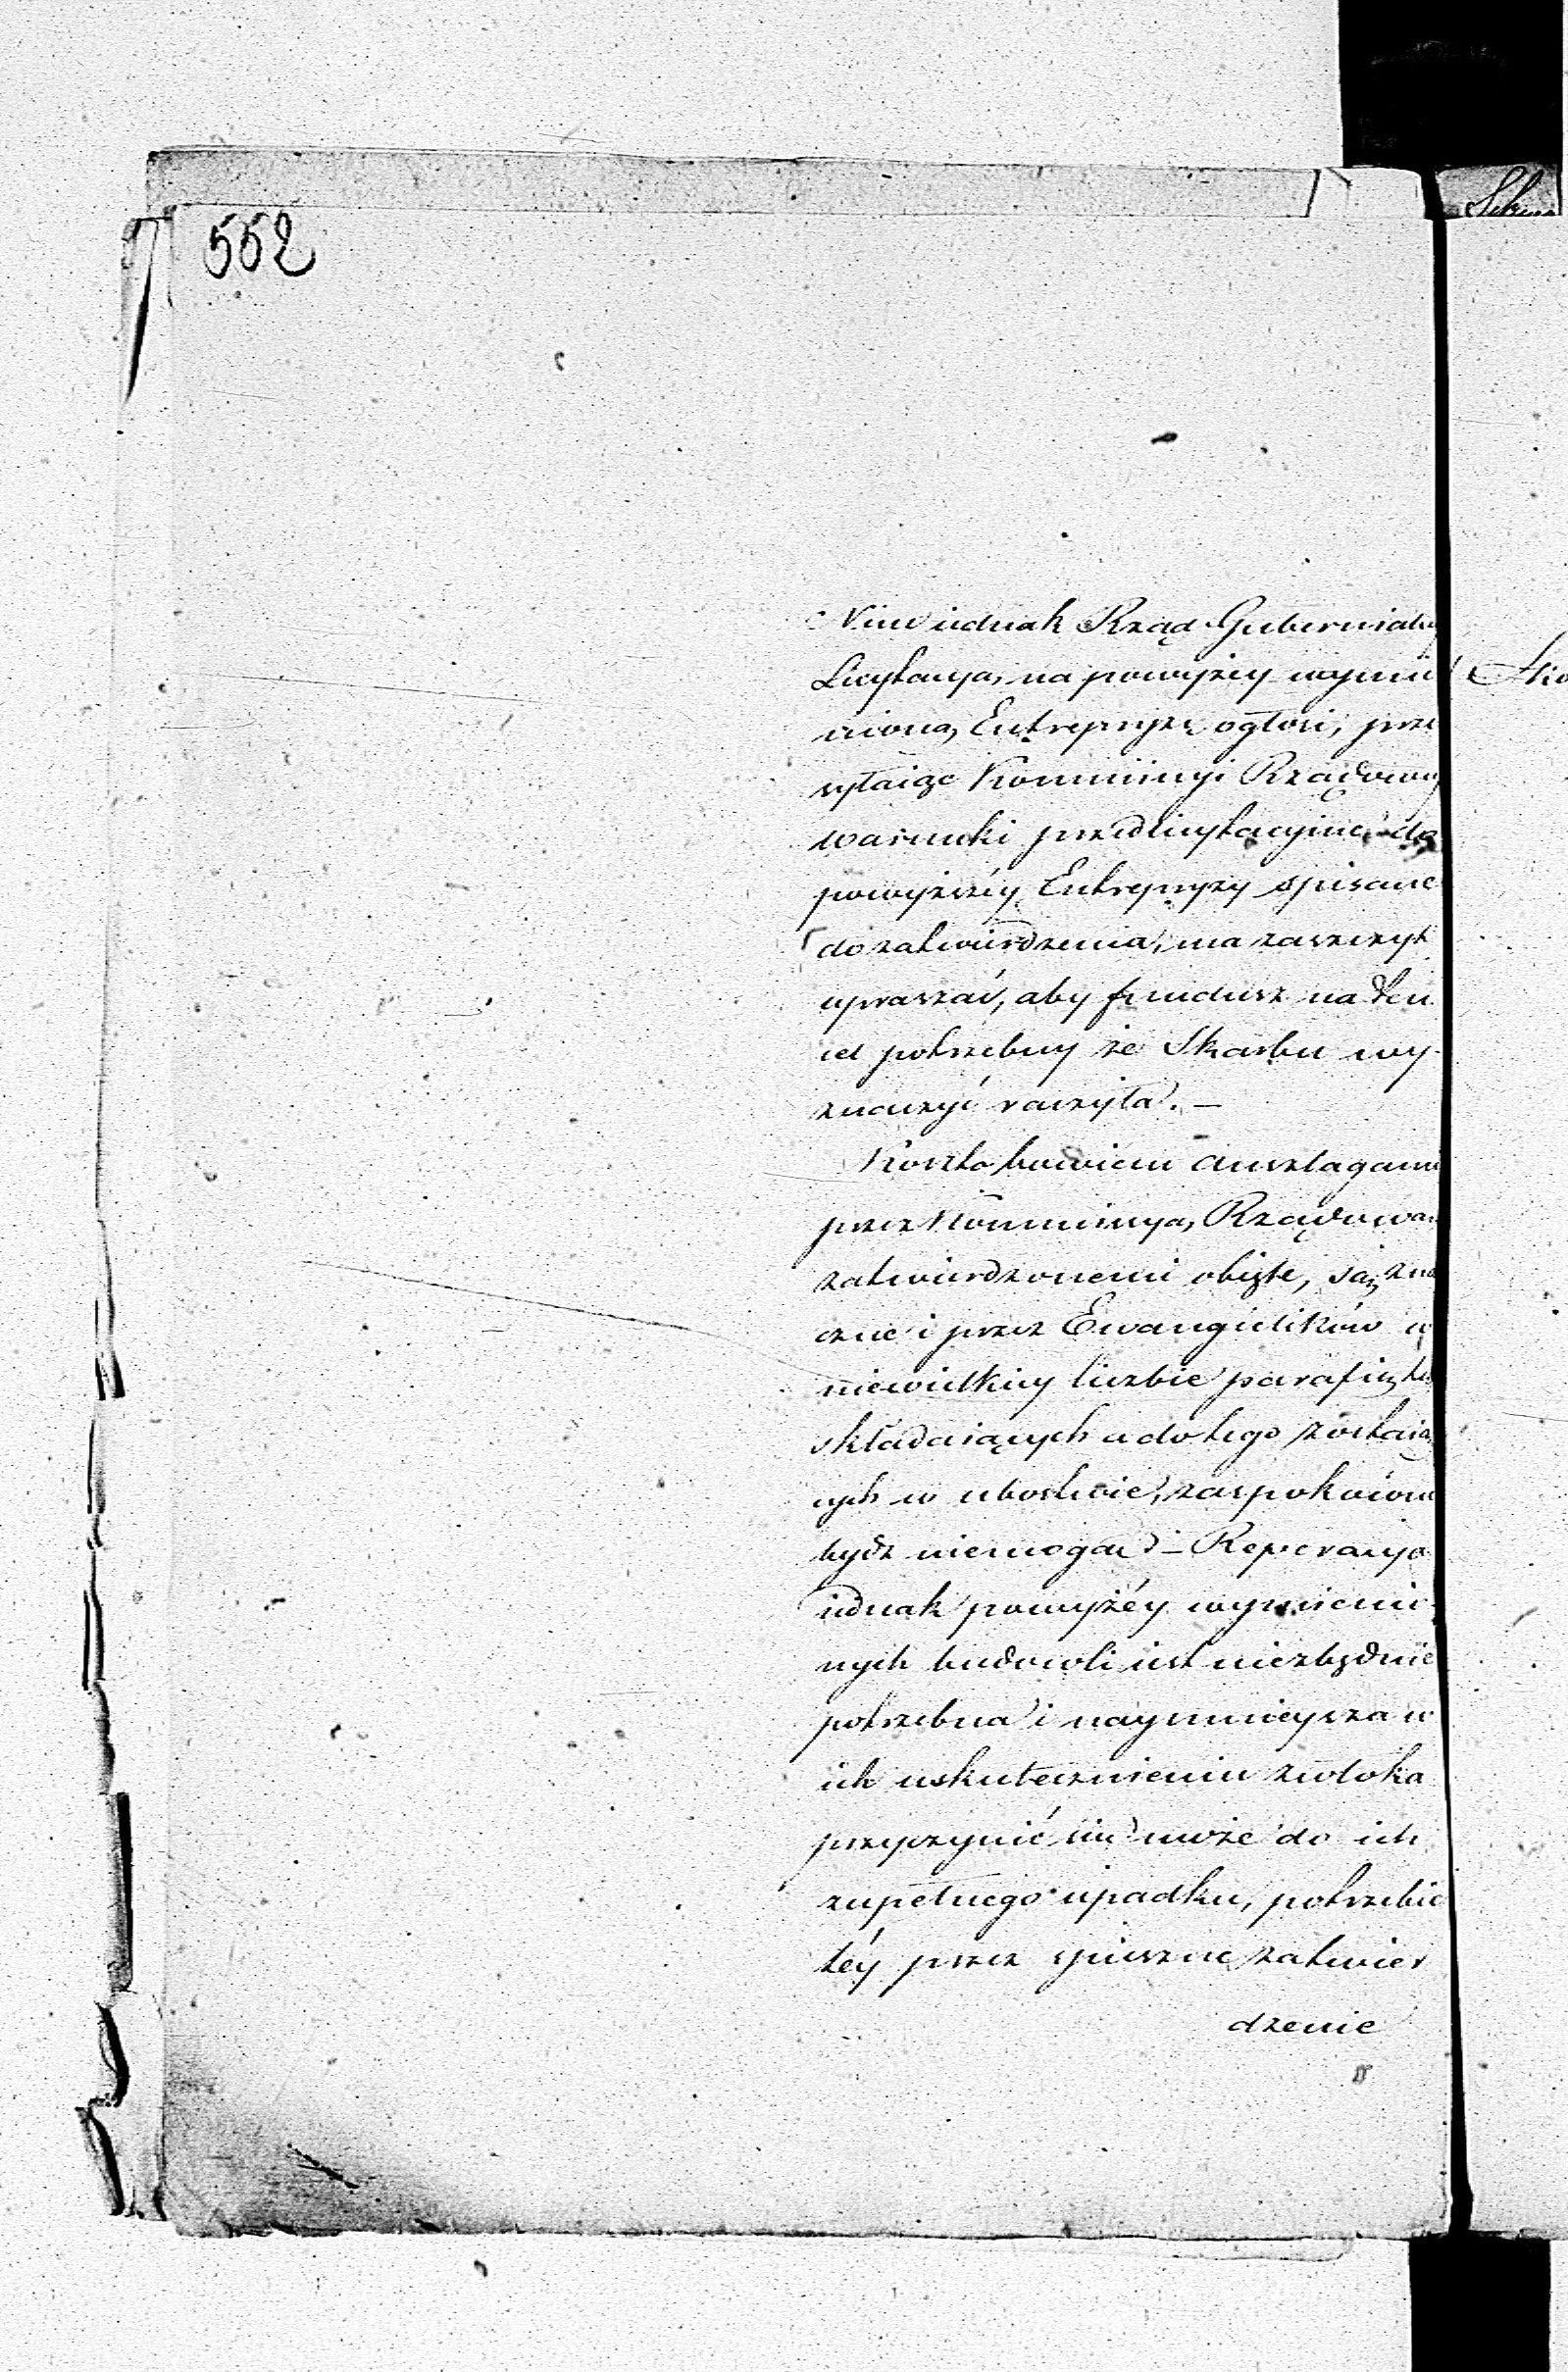 552
Nim iednak Rząd Gubernialny
Licytacyą na powyżey wymie
nioną Entrepryzę ogłosi, prze
syłaiąc Kommissyi Rządowey
warunki przedlicytacyine do
powyższéy Entrepryzy spisane
do zatwierdzenia, ma zaszczyt
upraszać, aby fundusz na ten
cel potrzebny ze Skarbu wy-
znaczyć raczyła. —
Koszta bowiem anszlagami
przez Kommissyą Rządową
zatwierdzonemi obięte, są zna
czne i przez Ewangielików w
niewielkiey liczbie parafią tę
składaiących a do tego zostaią
cych w ubóstwie, zaspokoione
bydź niemogą. — Reperacya
iednak powyżéy wymienio-
nych budowli iest niezbędnie
potrzebna i naymnieysza w
ich uskutecznieniu zwłoka
przyczynić się może do ich
zupełnego upadku, potrzebie
téy przez spieszne zatwier
dzenie